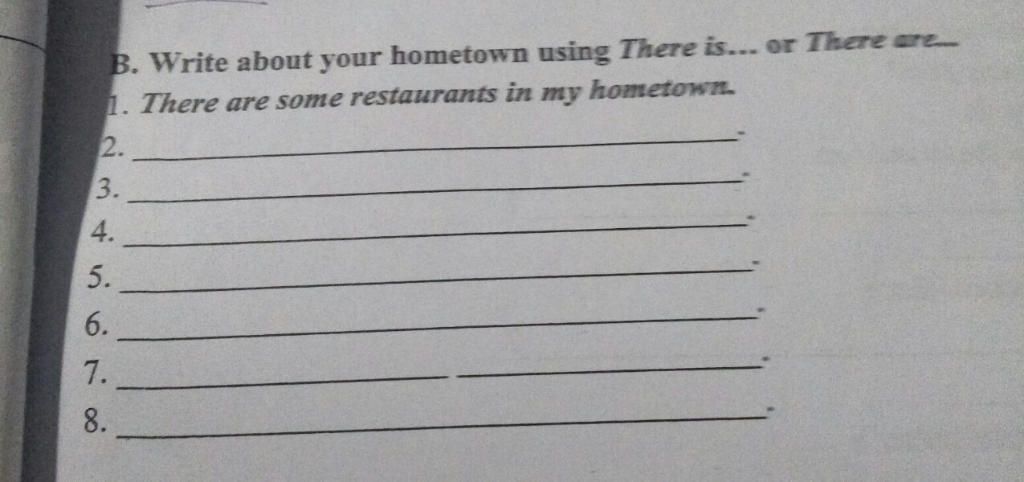 B. Write about your hometown using There is... or There are...
1. There are some restaurants in my hometown.
2. ____________________.
3. ____________________.
4. ____________________.
5. ____________________.
6. ____________________.
7. __________ __________.
8. ____________________.